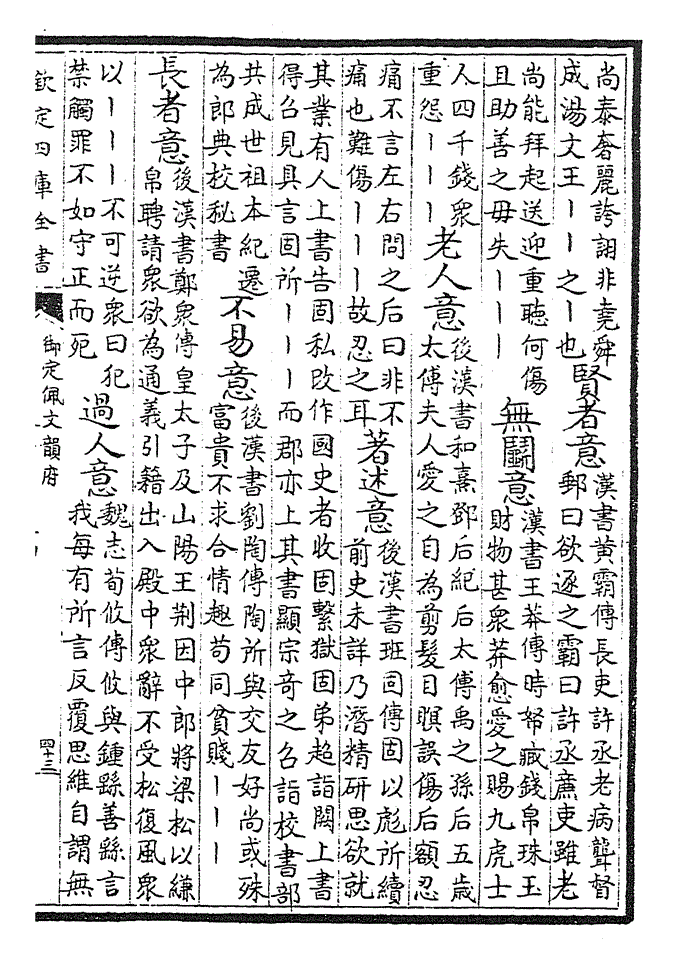 尚泰奢麗誇詡非堯舜
成湯文王丨丨之丨也
賢者意
漢書黄霸傳長吏許丞老病聾督
郵曰欲逐之霸曰許丞亷吏雖老
尚能拜起送迎重聽何傷
且助善之毋失丨丨丨
無鬭意
漢書王莽傳時帑藏錢帛珠玉
財物甚衆莽愈愛之賜九虎士
人四千錢衆
重怨丨丨丨
老人意
後漢書和熹鄧后紀后太傅禹之孫后五歲
太傅夫人愛之自為剪髮目暝誤傷后額忍
痛不言左右問之后曰非不
痛也難傷丨丨丨故忍之耳
著述意
後漢書班固傳固以彪所續
前史未詳乃潛精研思欲就
其業有人上書告固私改作國史者收固繫獄固弟超詣闕上書
得召見具言固所丨丨丨而郡亦上其書顯宗奇之召詣校書部
共成世祖本紀遷
為郎典校秘書
不易意
後漢書劉陶傳陶所與交友好尚或殊
富貴不求合情趣苟同貧賤丨丨丨
長者意
後漢書鄭衆傳皇太子及山陽王荆因中郎將梁松以縑
帛聘請衆欲為通義引籍出入殿中衆辭不受松復風衆
以丨丨丨不可逆衆曰犯
禁觸罪不如守正而死
過人意
魏志荀攸傳攸與鍾繇善繇言
我每有所言反覆思維自謂無
欽定四庫全書
御定佩文韻府
四十三